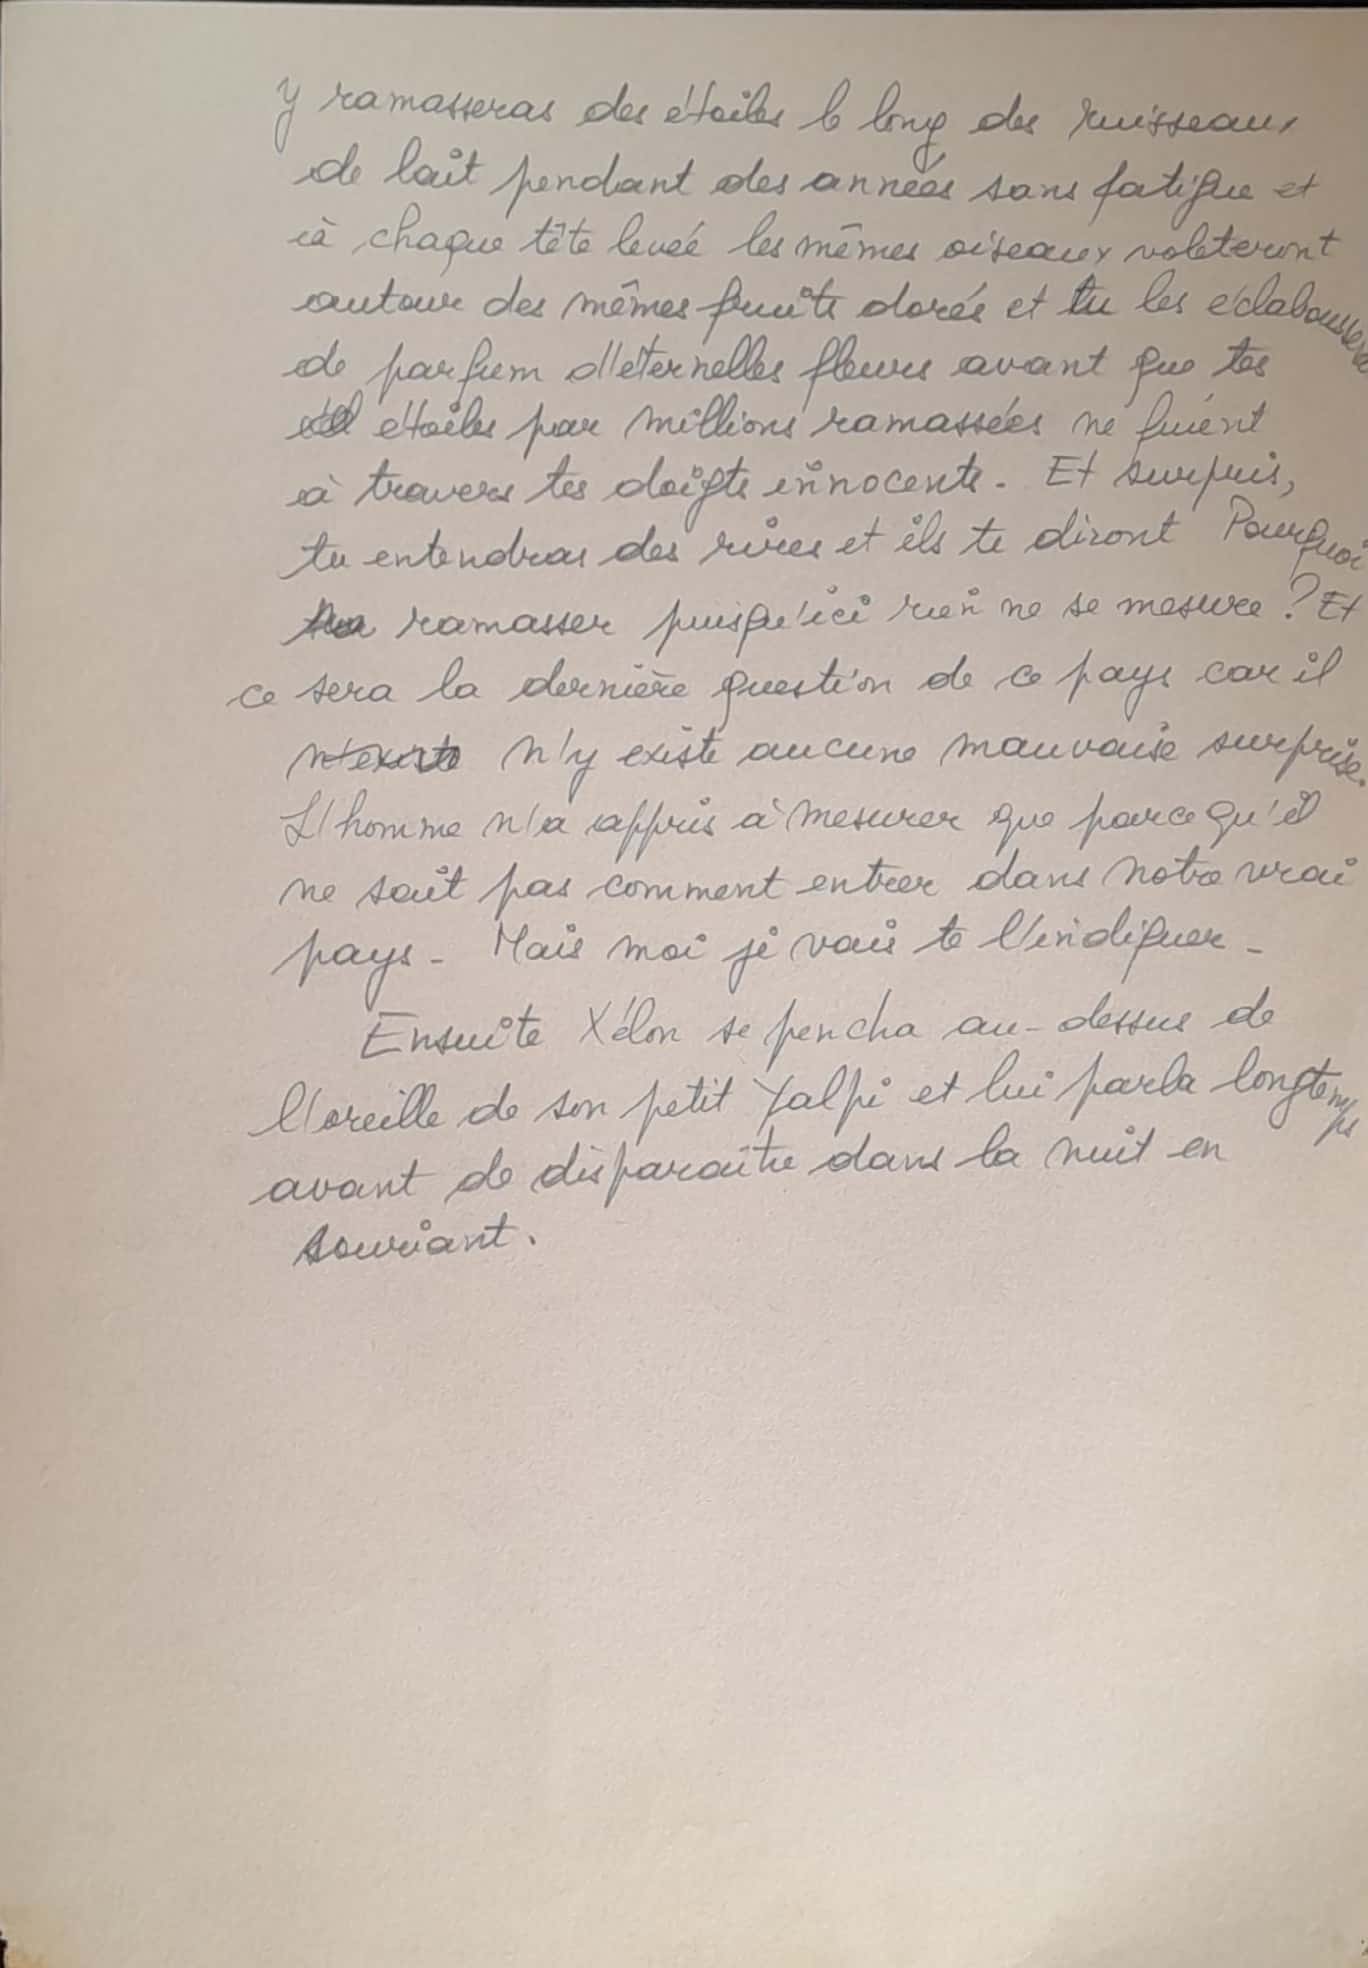 y ramasseras des étoiles le long des ruisseaux
de lait pendant des années sans fatigue et
à chaque tête levée les mêmes oiseaux voleteront
autour des mêmes fruits dorés et tu les éclabousseras
de parfum d'éternelles fleurs avant que tes
étoiles par millions ramassées ne fuient
à travers tes doigts innocents. Et surpris,
tu entendras des rires et ils te diront Pourquoi
ramasser puisqu'ici rien ne se mesure ? Et
ce sera la dernière question de ce pays car il
n'existe n'y existe aucune mauvaise surprise.
L'homme n'a appris à mesurer que parce qu'il
ne sait pas comment entrer dans notre vrai
pays - Mais moi je vais te l'indiquer -
Ensuite Xélon se pencha au-dessus de
l'oreille de son petit Yalpi et lui parla longtemps
avant de disparaître dans la nuit en
souriant.